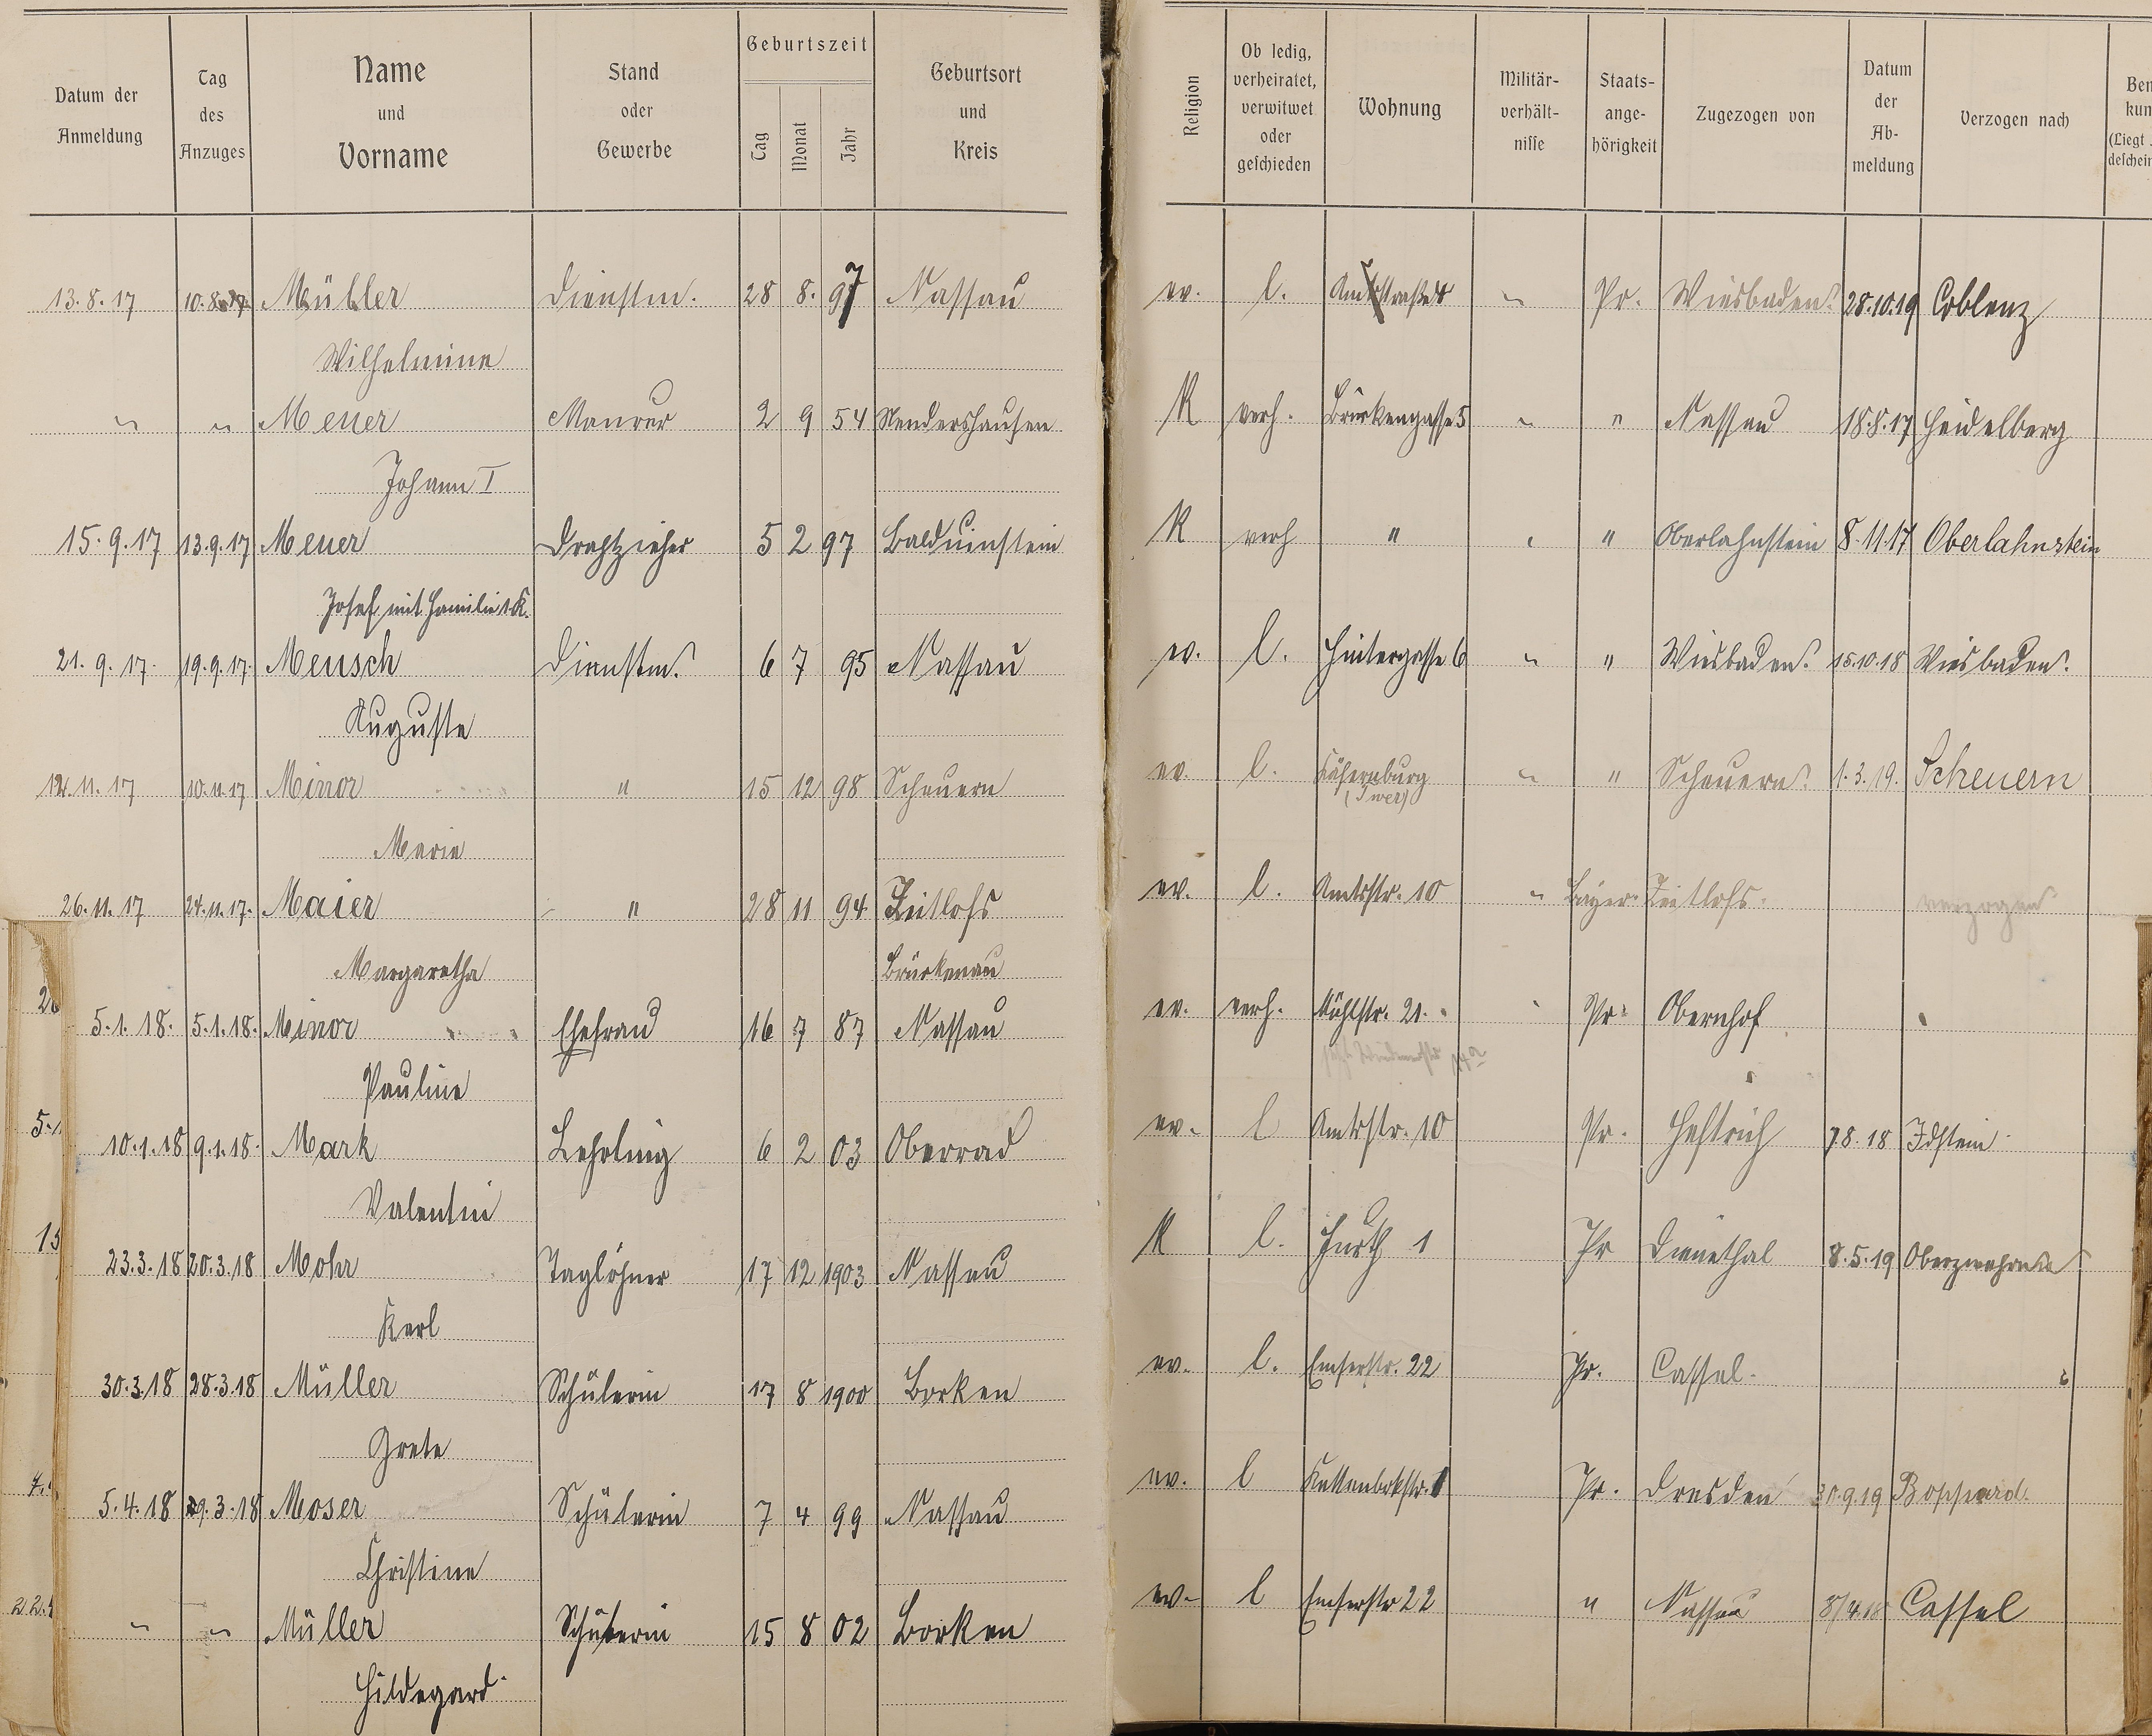 Datum der Anmeldung | Tag des Anzuges | Name und Vorname | Stand oder Gewerbe | Geburtszeit Tag Monat Jahr | Geburtsort und Kreis | Religion | Ob ledig, verheiratet, verwitwet oder geschieden | Wohnung | Militär-verhält-nisse | Staats-ange-hörigkeit | Zugezogen von | Datum der Ab-meldung | Verzogen nach
13.8.17 10.8.17 Müller Dienstm. 28 8. 97 Nassau ev. l. Amtsstraße " Pr. Wiesbaden 28.10.19 Coblenz
Wilhelmine
" " Meuer Maurer 2 9 54 K verh. Brückengasse 5 " " Nassau 18.8.17 Heidelberg
Johann I
15.9.17 13.9.17 Meuer Drahtzieher 5 2 97 Balduinstein K verh " " Oberlahnstein 8.11.17 Oberlahnstein
Josef mit Familie 1 K.
21.9.17. 19.9.17. Meusch Dienstm. 6 7 95 Nassau ev. l. Hintergasse 6 " " Wiesbaden 15.10.18 Wiesbaden.
Auguste
12.11.17 10.11.17 Minor " 15 12 98 Scheuern ev. l. Käfernburg " " Scheuern 1.3.19. Scheuern
Marie
26.11.17 24.11.17. Maier " 28 11 94 Zeitlofs ev. l. Amtsstr. 10 " Bayer. Zeitlofs. verzogen
Margaretha Brückenau
5.1.18. 5.1.18. Minor Ehefrau 16 7 87 Nassau ev. verh. Mühlstr. 21. Pr. Obernhof
Pauline
10.1.18 9.1.18. Mark Lehrling 6 2 03 Oberrad ev. l Amtsstr. 10 Pr. Heftrich 7.8.18 Idstein
Valentin
23.3.18 20.3.18 Mohr Taglöhner 17 12 1903 Nassau K l. 1 Pr Dienethal 8.5.19
Karl
30.3.18 28.3.18 Müller Schülerin 17 8 1900 Borken ev. l. Emserstr. 22 Pr. Cassel.
Grete
5.4.18 29.3.18 Moser Schülerin 7 4 99 Nassau ev. l Pr. Dresden 30.9.19 Boppard.
Christine
" " Müller Schülerin 15 8 02 Borken ev. l Emserstr 22 " Nassau Cassel
Hildegard